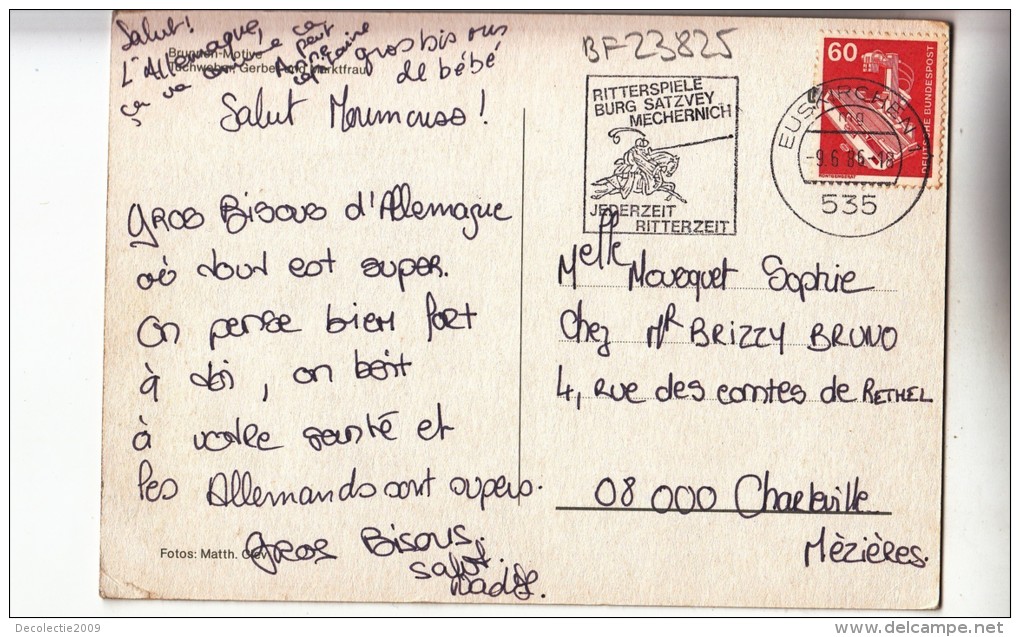 Salut!
L'Allemagne,
ça va
ça
peut
gros bisous
de bébé
Brunnen-Motive
Tschweber, Gerber und Marktfrau
Salut Moumcuss!
BF23825
RITTERSPIELE
BURG SATZVEY
MECHERNICH
JEDERZEIT
RITTERZEIT
60
DEUTSCHE BUNDESPOST
EUSKIRCHEN 1
-9.6.86-18
535
Gros Bisous d'Allemagne
où tout est super.
On pense bien fort
à toi, on boit
à votre santé et
les Allemands sont supers.
Gros Bisous.
Salut.
Fotos: Matth.
Melle Mouequet Sophie
Chez Mr BRIZZY BRUNO
4, rue des comtes de RETHEL
08 000 Charleville
Mèzières.
Decolectie2009
www.delcampe.net